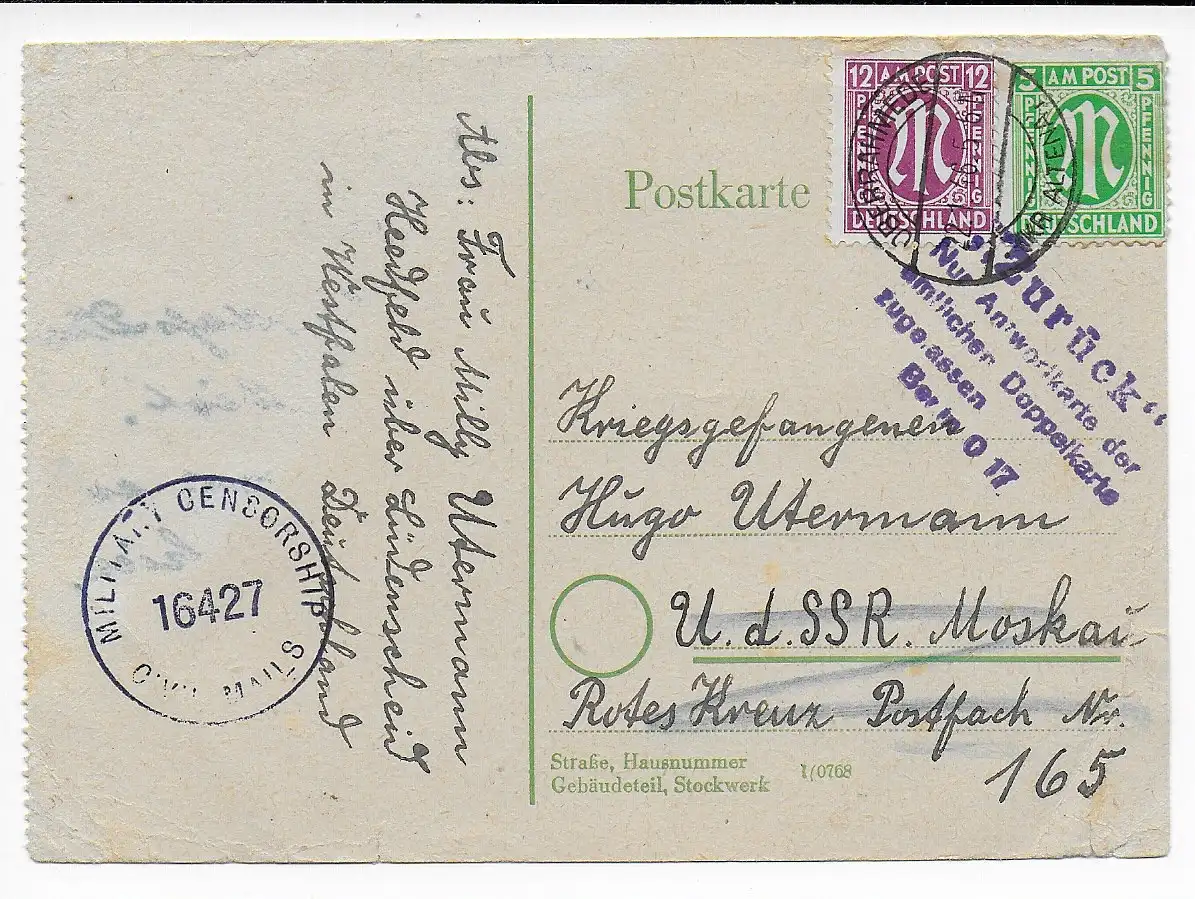 Abs: Frau Milly Utermann
Heedfeld über Lüdenscheid
in Westfalen Deutschland
MILITARY CENSORSHIP
16427
CIVIL MAILS
Postkarte
12 AM POST 12
PFENNIG PFENNIG
M
DEUTSCHLAND
5 AM POST 5
PFENNIG PFENNIG
M
DEUTSCHLAND
OBERRAHMEDE
ALTENA
„Zurück“
Nur Antwortkarte der
amtlichen Doppelkarte
zugelassen
Berlin O 17
Kriegsgefangenen
Hugo Utermann
U.d.SSR. Moskau
Rotes Kreuz Postfach Nr.
165
Straße, Hausnummer
Gebäudeteil, Stockwerk
1/0768